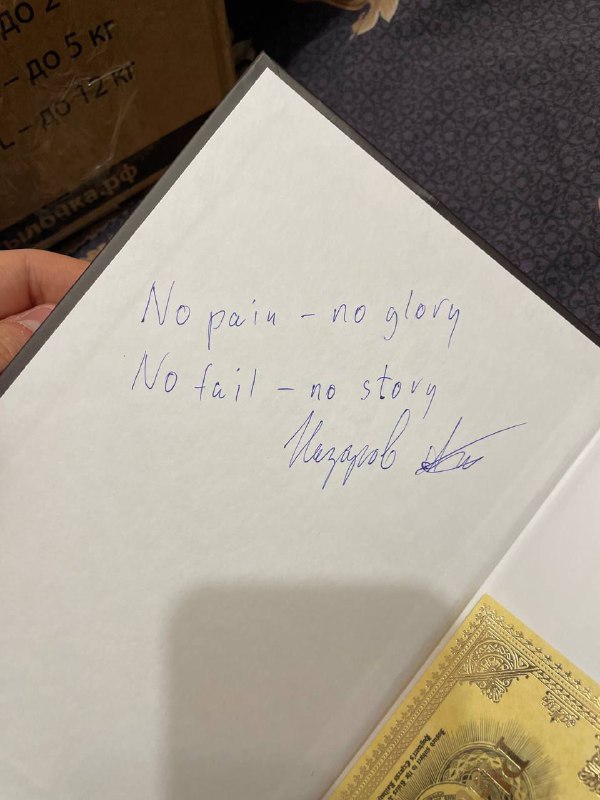 до 2
– до 5 кг
L – до 12 кг
ылочка.рф
No pain – no glory
No fail – no story
Назаров